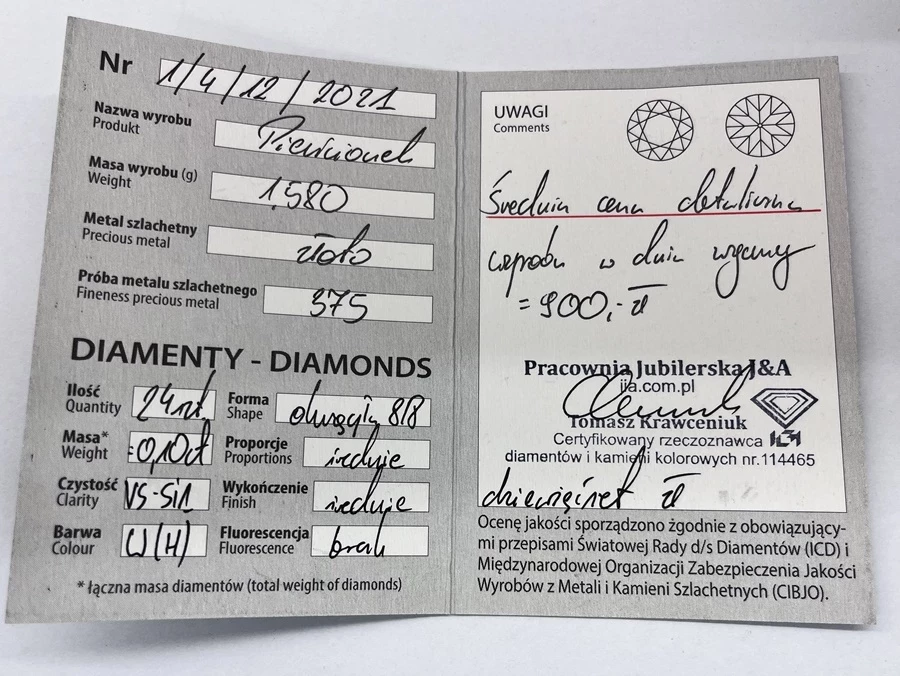 Nr 1/4/12/2021
Nazwa wyrobu
Produkt
Pierścionek
Masa wyrobu (g)
Weight
1,580
Metal szlachetny
Precious metal
złoto
Próba metalu szlachetnego
Fineness precious metal
375
DIAMENTY - DIAMONDS
Ilość
Quantity
24 szt.
Forma
Shape
okrągła 8/8
Masa*
Weight
=0,10ct
Proporcje
Proportions
średnie
Czystość
Clarity
VS-SI1
Wykończenie
Finish
średnie
Barwa
Colour
W(H)
Fluorescencja
Fluorescence
brak
* łączna masa diamentów (total weight of diamonds)
UWAGI
Comments
Średnia cena detaliczna
wyrobu w dniu wyceny
= 900,- zł
Pracownia Jubilerska J&A
jja.com.pl
Tomasz Krawceniuk
Certyfikowany rzeczoznawca
diamentów i kamieni kolorowych nr.114465
dziewięćset zł
Ocenę jakości sporządzono żgodnie z obowiązujący-
mi przepisami Światowej Rady d/s Diamentów (ICD) i
Międzynarodowej Organizacji Zabezpieczenia Jakości
Wyrobów z Metali i Kamieni Szlachetnych (CIBJO).